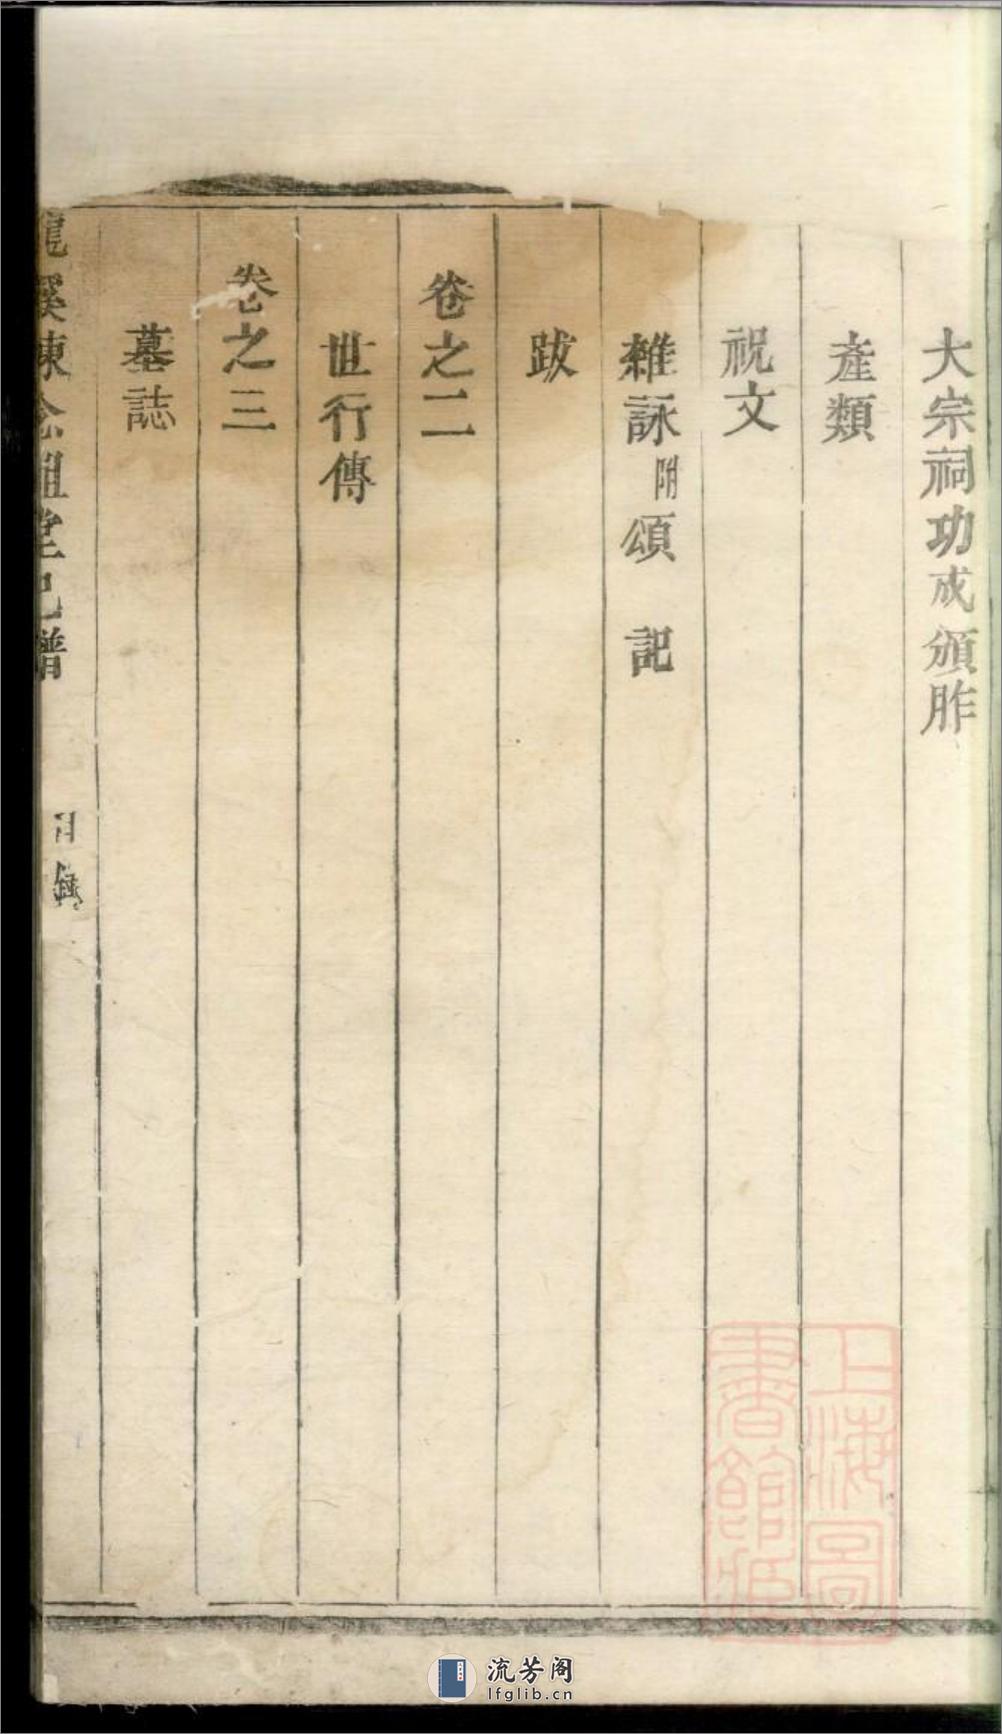 大宗祠功成頒胙
產類
祝文
雜詠附頌 記
跋
卷之二
世行傳
卷之三
墓誌
龍溪陳念祖堂記譜
目錄
上海圖書館藏
流芳阁
lfglib.cn